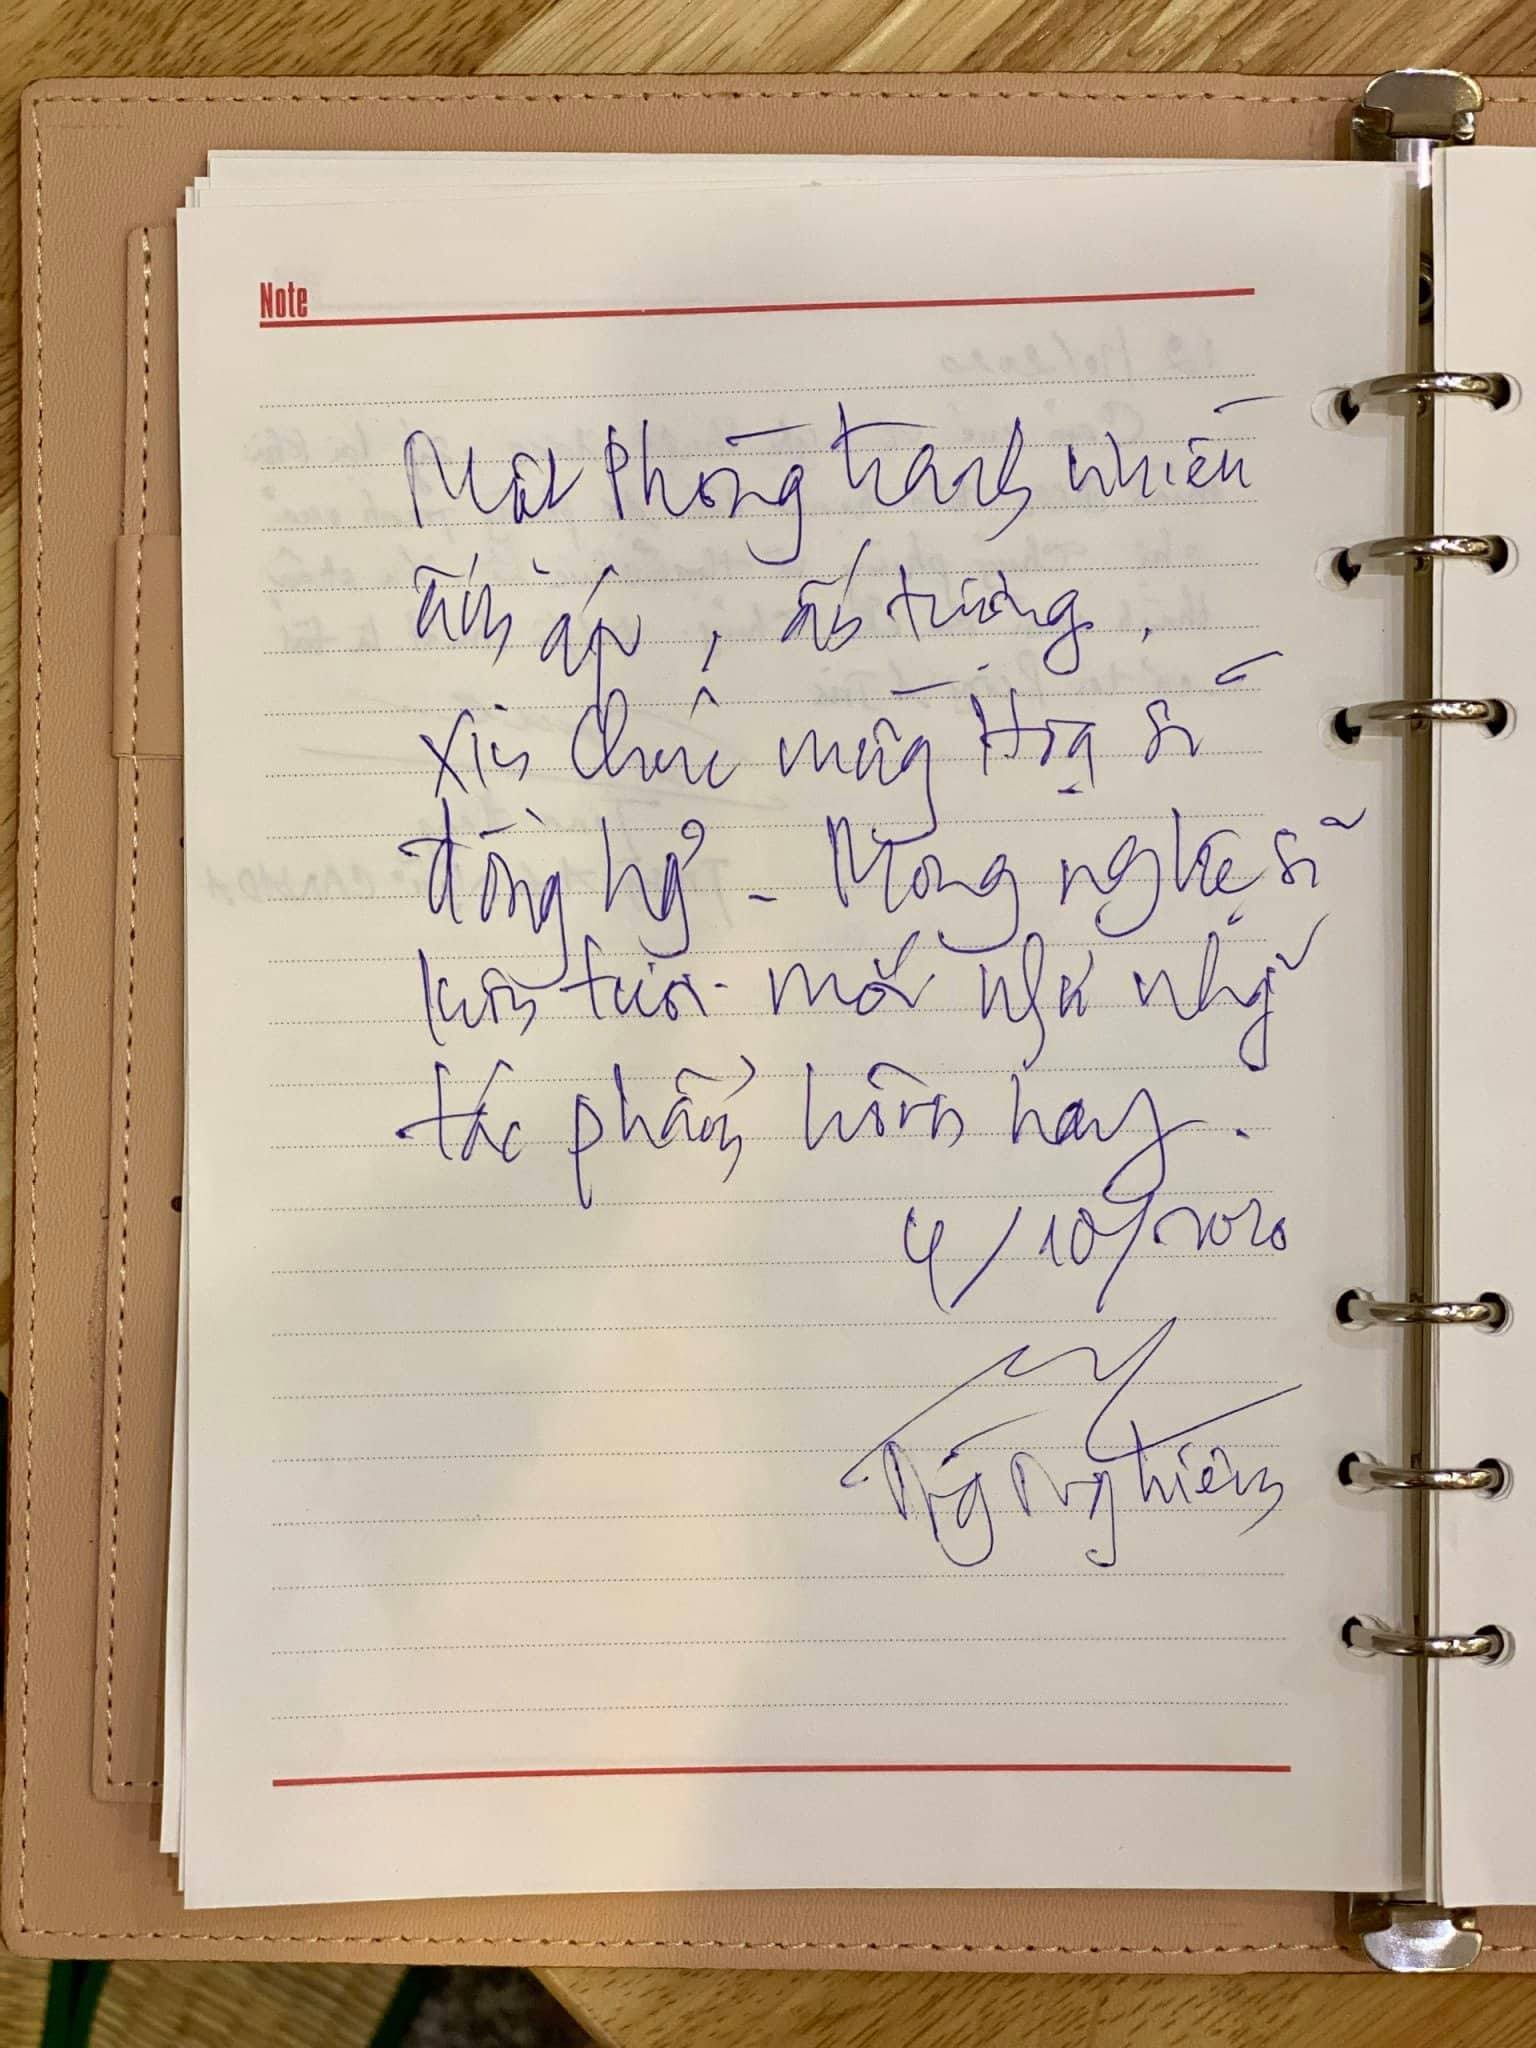 Note
Một phòng tranh nhiều
ấm áp, ấn tượng.
Xin chúc mừng Họa sĩ
đồng hg - Mong nghệ sĩ
luôn tươi mới như những
tác phẩm hôm nay.
4/10/2020
Nghiêm